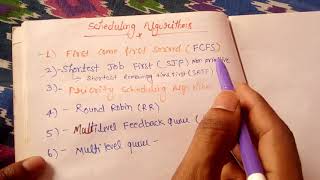 Scheduling Algorithms
1) First come first served (FCFS)
2) - Shortest Job First (SJF) Non primitive
- Shortest Remaining time first (SRTF)
3) - Priority scheduling Algorithm
4) - Round Robin (RR)
5) Multilevel Feedback queue (
6) - Multilevel queue -